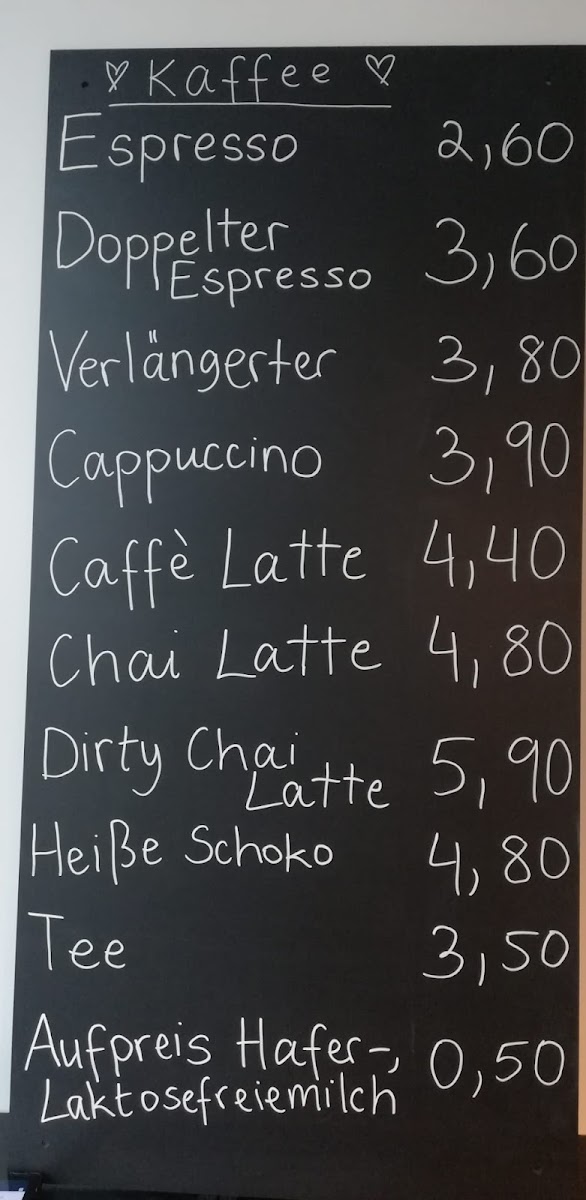 ♡ Kaffee ♡
Espresso 2,60
Doppelter
Espresso 3,60
Verlängerter 3,80
Cappuccino 3,90
Caffè Latte 4,40
Chai Latte 4,80
Dirty Chai
Latte 5,90
Heiße Schoko 4,80
Tee 3,50
Aufpreis Hafer-, 0,50
Laktosefreiemilch